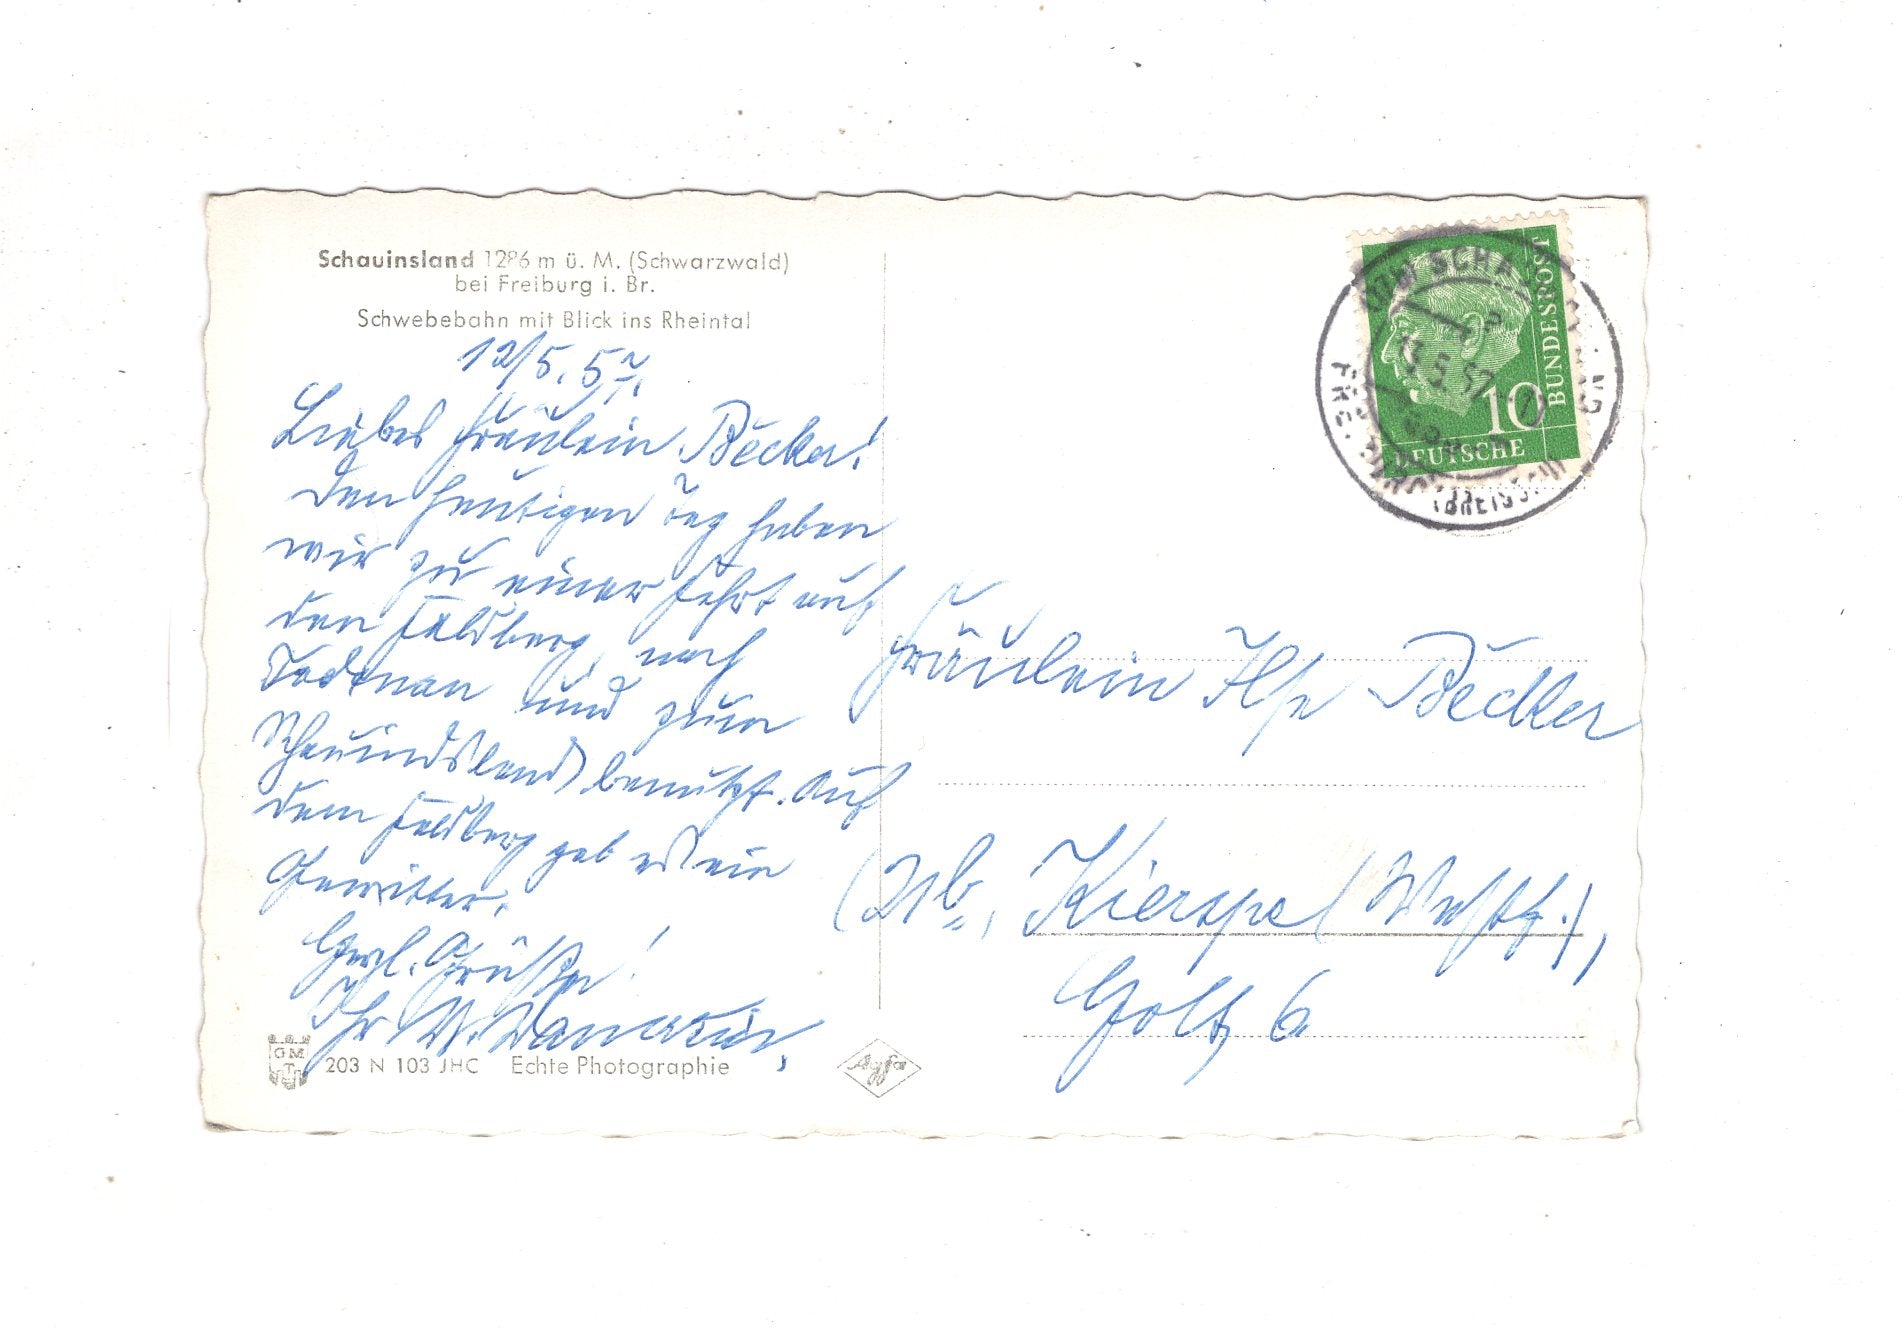 Schauinsland 1286 m ü. M. (Schwarzwald)
bei Freiburg i. Br.
Schwebebahn mit Blick ins Rheintal
12/5. 57.
Liebes Fräulein Becker!
Den heutigen Tag haben
wir zu einer Fahrt auf
den Feldberg, nach
Todtnau und zum
Schauindsland benutzt. Auf
dem Feldberg gab es ein
Gewitter.
Herzl. Grüße!
Ihr W.
GMT
203 N 103 JHC Echte Photographie
Agfa
DEUTSCHE BUNDESPOST
10
13.5.57
Fräulein Ilse Becker
Kierspe (Westf.),